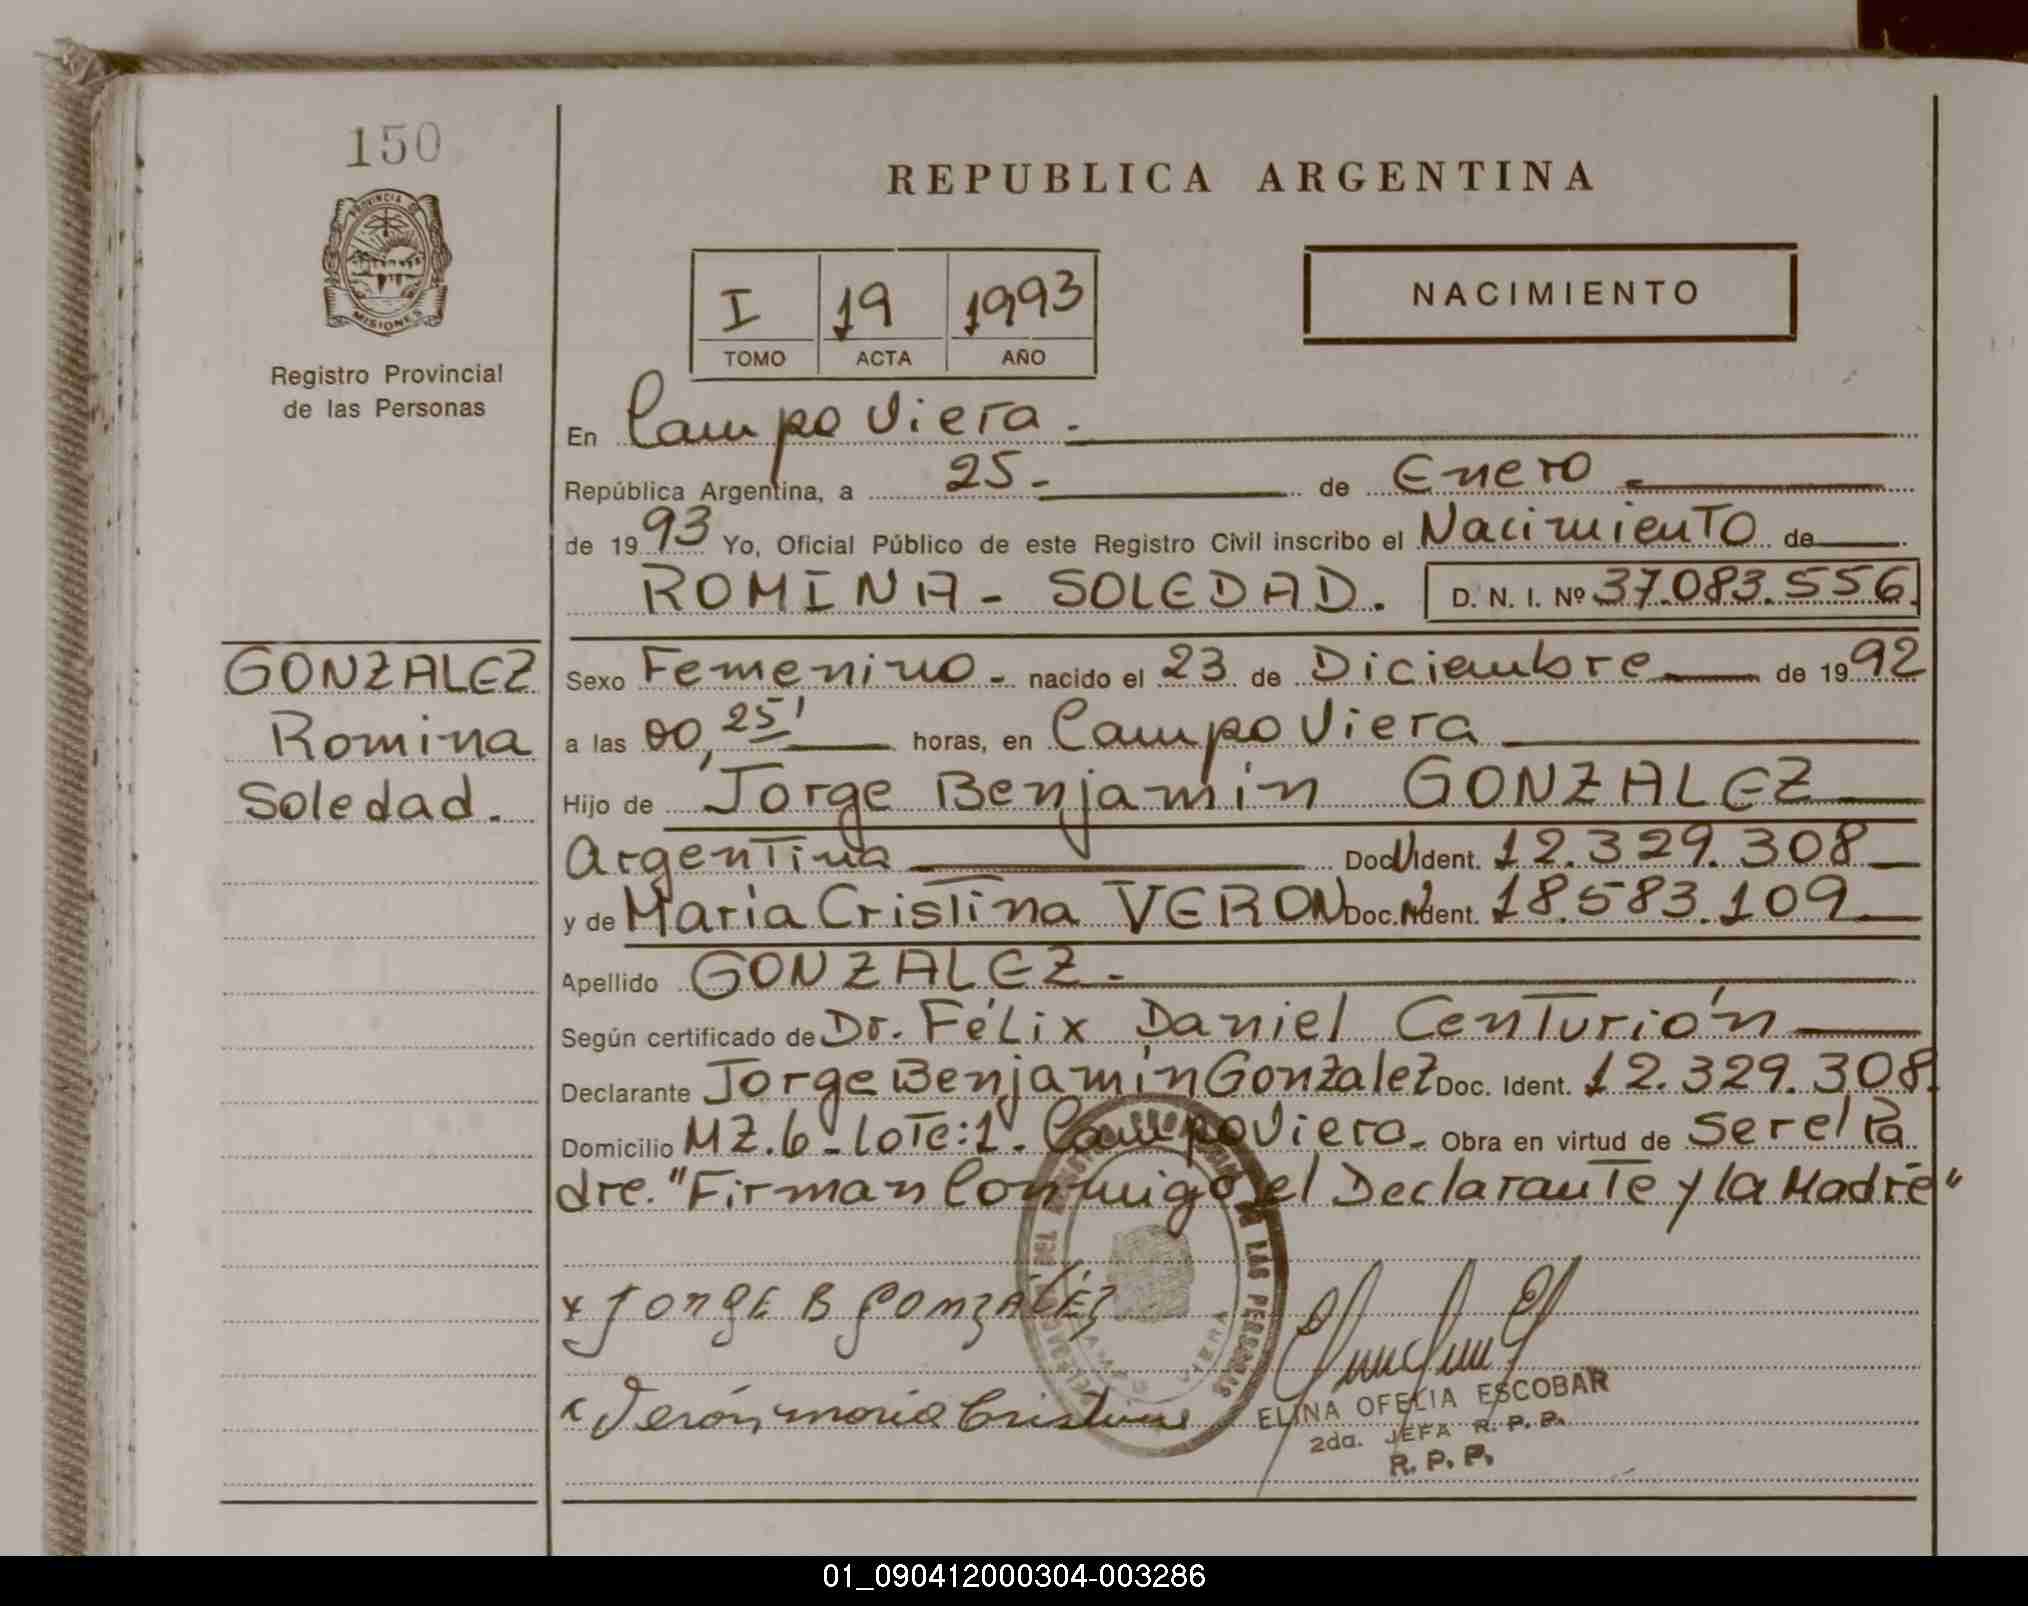 150
PROVINCIA DE
MISIONES
Registro Provincial
de las Personas
REPUBLICA ARGENTINA
I 19 1993
TOMO ACTA AÑO
NACIMIENTO
En Campo Viera.
República Argentina, a 25- de Enero
de 1993 Yo, Oficial Público de este Registro Civil inscribo el Nacimiento de
ROMINA - SOLEDAD. D. N. I. Nº 37.083.556.
GONZALEZ
Romina
Soledad.
Sexo Femenino - nacido el 23 de Diciembre de 1992
a las 00,25' horas, en Campo Viera
Hijo de Jorge Benjamín GONZALEZ
Argentina Doc. Ident. 12.329.308
y de María Cristina VERON Doc. Ident. 18.583.109
Apellido GONZALEZ -
Según certificado de Dr. Félix Daniel Centurión
Declarante Jorge Benjamín Gonzalez Doc. Ident. 12.329.308.
Domicilio MZ.6 - Lote:1. Campo Viera. Obra en virtud de Ser el Pa
dre. "Firman Conmigo el Declarante y la Madre"
x Jorge B Gonzalez
x Verón, maria Cristina
ELINA OFELIA ESCOBAR
2da. JEFA R. P. P.
R. P. P.
01_090412000304-003286